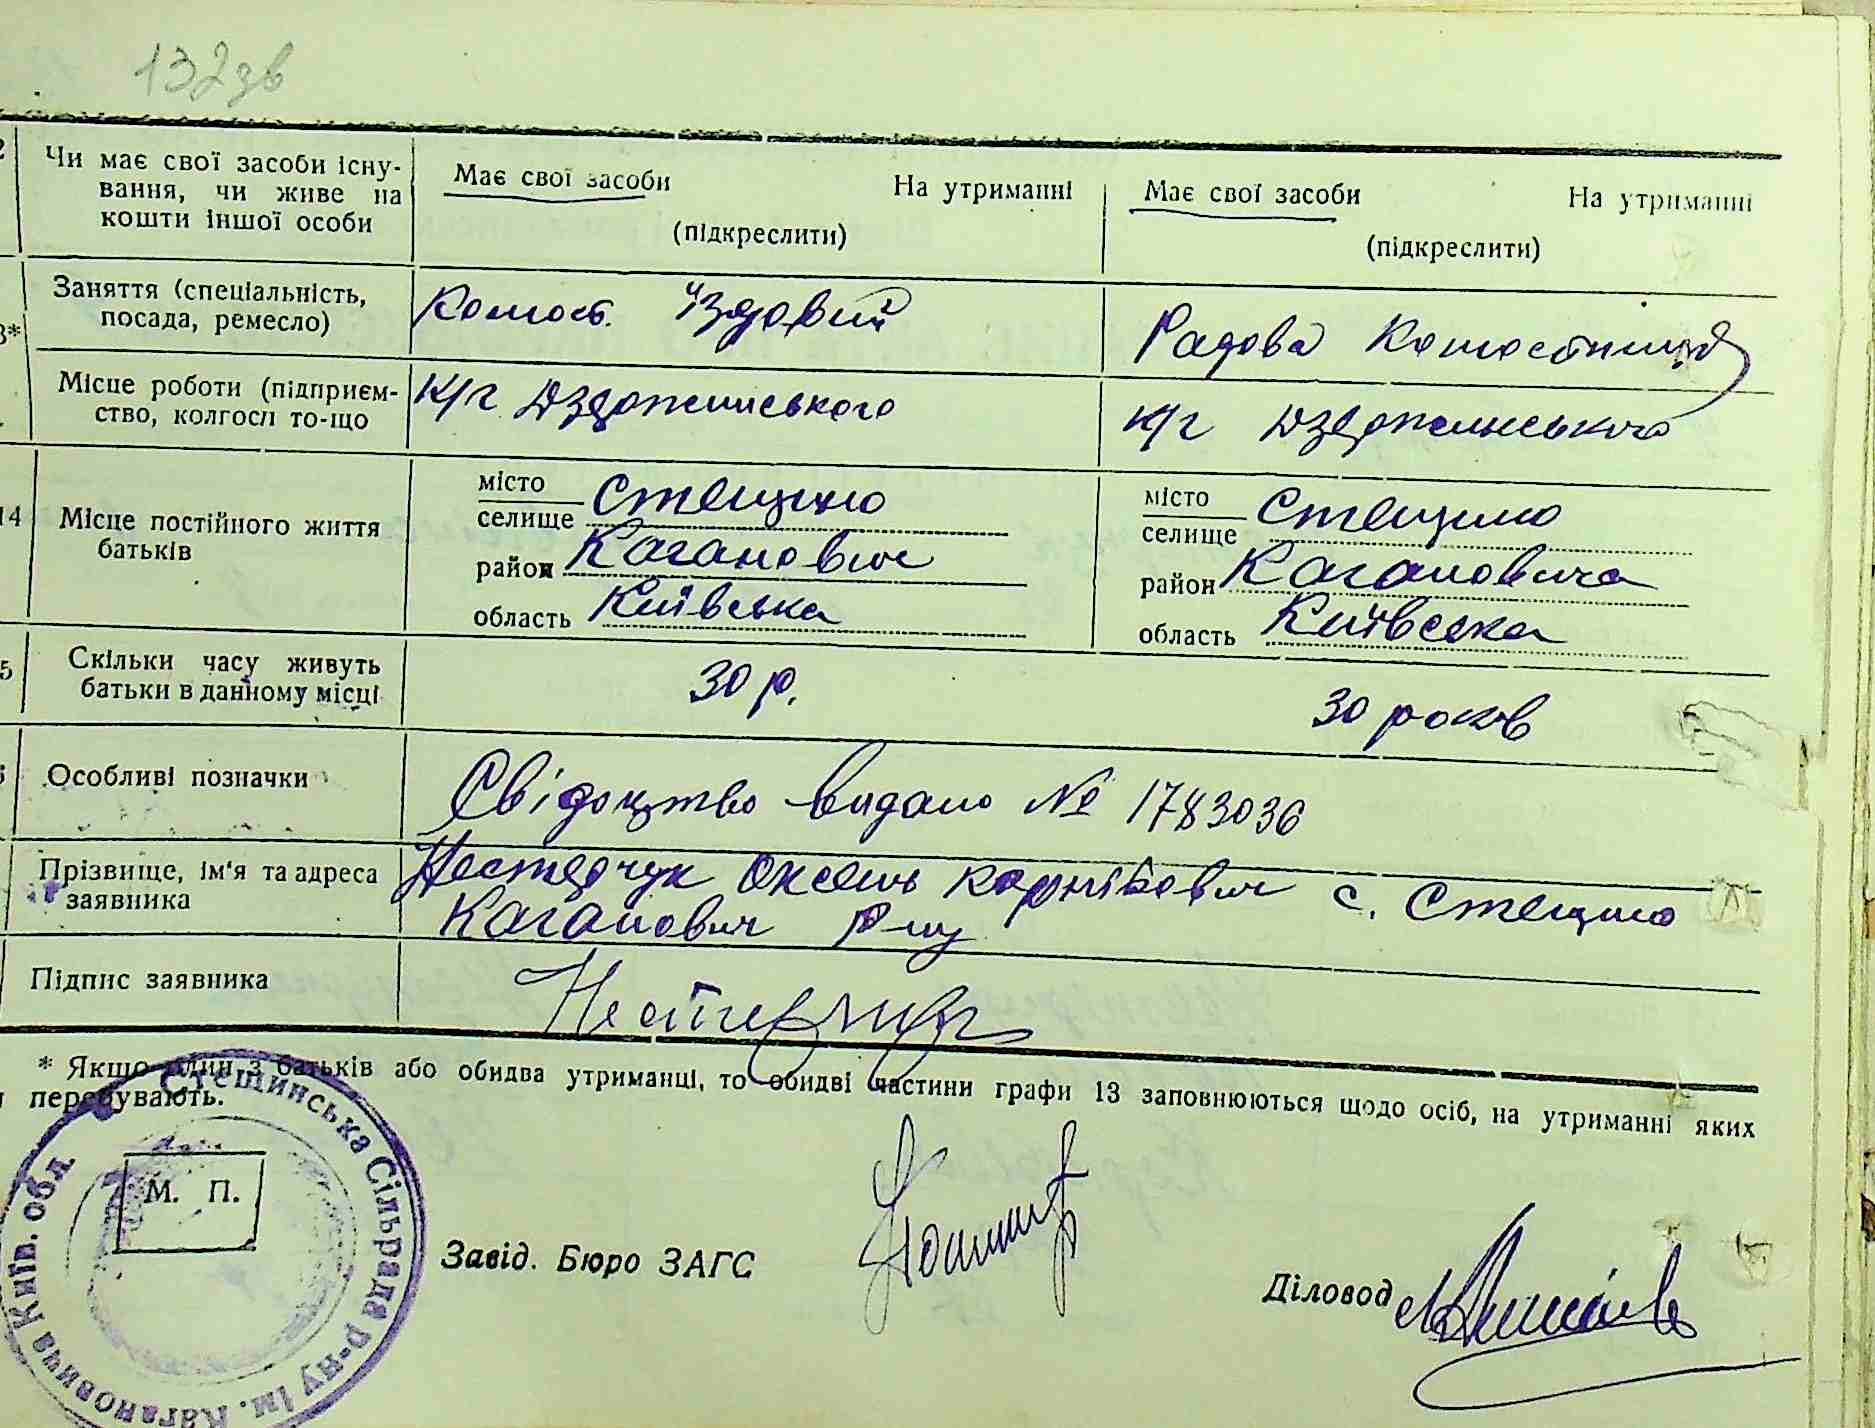 132 зв
2 Чи має свої засоби існу-
вання, чи живе на
кошти іншої особи
Має свої засоби На утриманні
(підкреслити)
Має свої засоби На утриманні
(підкреслити)
3* Заняття (спеціальність,
посада, ремесло)
Колгосп. їздовий
Рядова колгоспниця
Місце роботи (підприєм-
ство, колгосп то-що
к/г Дзержинського
к/г Дзержинського
14 Місце постійного життя
батьків
місто
селище Стещино
район Каганович
область Київська
місто
селище Стещино
район Кагановича
область Київська
5 Скільки часу живуть
батьки в данному місці
30 р.
30 років
Особливі позначки
Свідоцтво видано № 1783036
Прізвище, ім'я та адреса
заявника
Нестерчук Оксень Корнійович с. Стещино
Каганович р-ну
Підпис заявника
* Якщо один з батьків або обидва утриманці, то обидві частини графи 13 заповнюються щодо осіб, на утриманні яких
перебувають.
Стещинська Сільрада р-ну ім. Кагановича Київ. обл.
М. П.
Завід. Бюро ЗАГС
Діловод